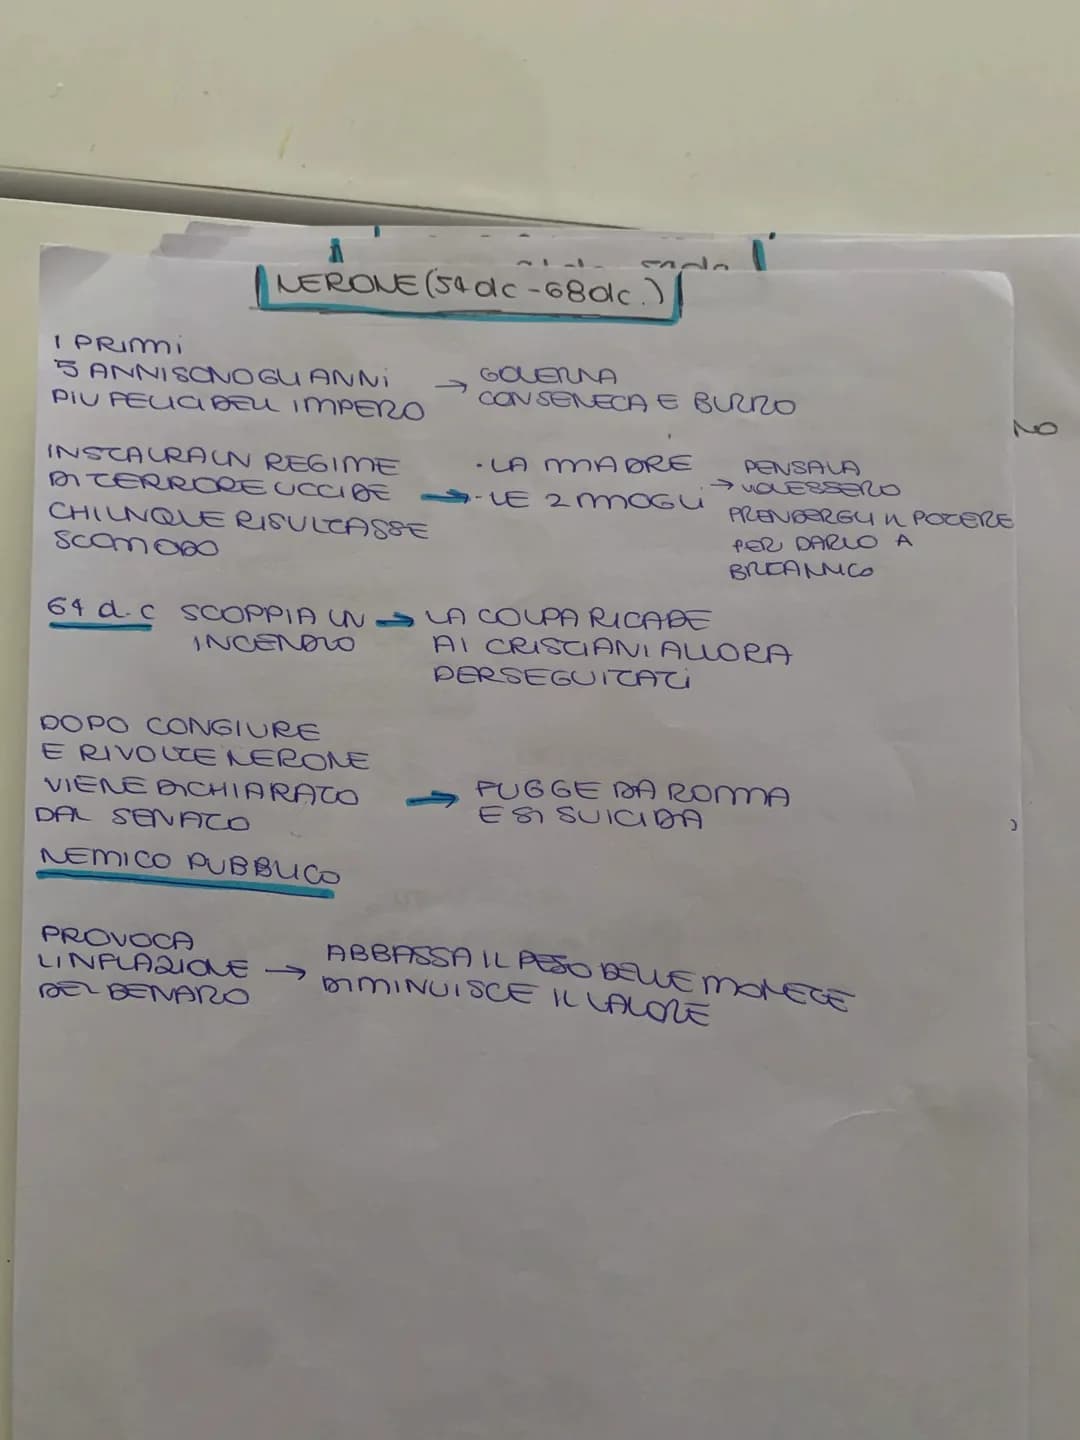 NERONE (54 dc - 68 dc.)
I PRIMI
5 ANNI SONO GLI ANNI
PIU FELICI DELL IMPERO
→ GOVERNA
CON SENECA E BURRO
INSTAURA UN REGIME
DI TERRORE UCCIDE
CHIUNQUE RISULTASSE
SCOMODO
→ · LA MADRE
· LE 2 MOGLI
→ PENSAVA
VOLESSERO
PRENDERGLI IL POTERE
PER DARLO A
BRITANNICO
64 d.C SCOPPIA UN
INCENDIO
→ LA COLPA RICADE
AI CRISTIANI ALLORA
PERSEGUITATI
DOPO CONGIURE
E RIVOLTE NERONE
VIENE DICHIARATO
DAL SENATO
NEMICO PUBBLICO
→ FUGGE DA ROMA
E SI SUICIDA
PROVOCA
L'INFLAZIONE
DEL DENARO
→ ABBASSA IL PESO DELLE MONETE
DIMINUISCE IL VALORE
NO